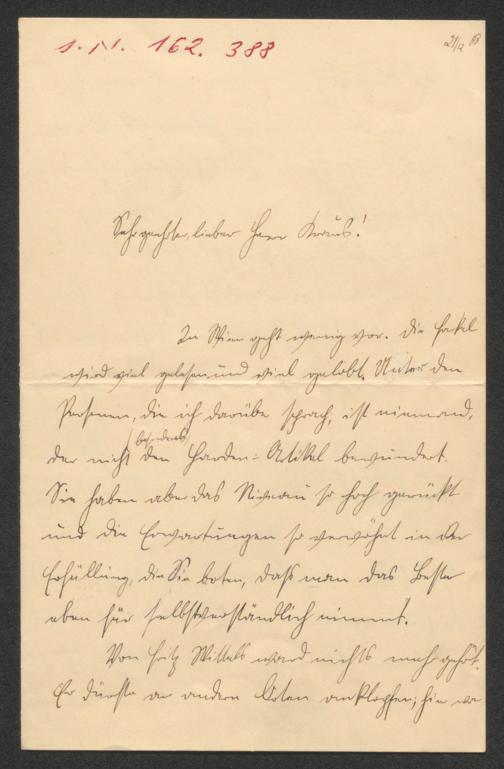 I. N. 162.388
Sehr geehrter, lieber Herr Kraus!
In Wien geht wenig vor. Die Fackel
wird viel gelesen und viel gelobt. Unter den
Personen, die ich darüber sprach, ist niemand,
der nicht besonders den Harden-Artikel bewundert.
Sie haben aber das Niveau so hoch gerückt
und die Erwartungen so verwöhnt in der
Erfüllung, die Sie boten, dass man das Beste
eben für selbstverständlich nimmt.
Von Fritz Wittels ward nichts mehr gehört.
Er dürfte an andern Orten anklopfen; hie